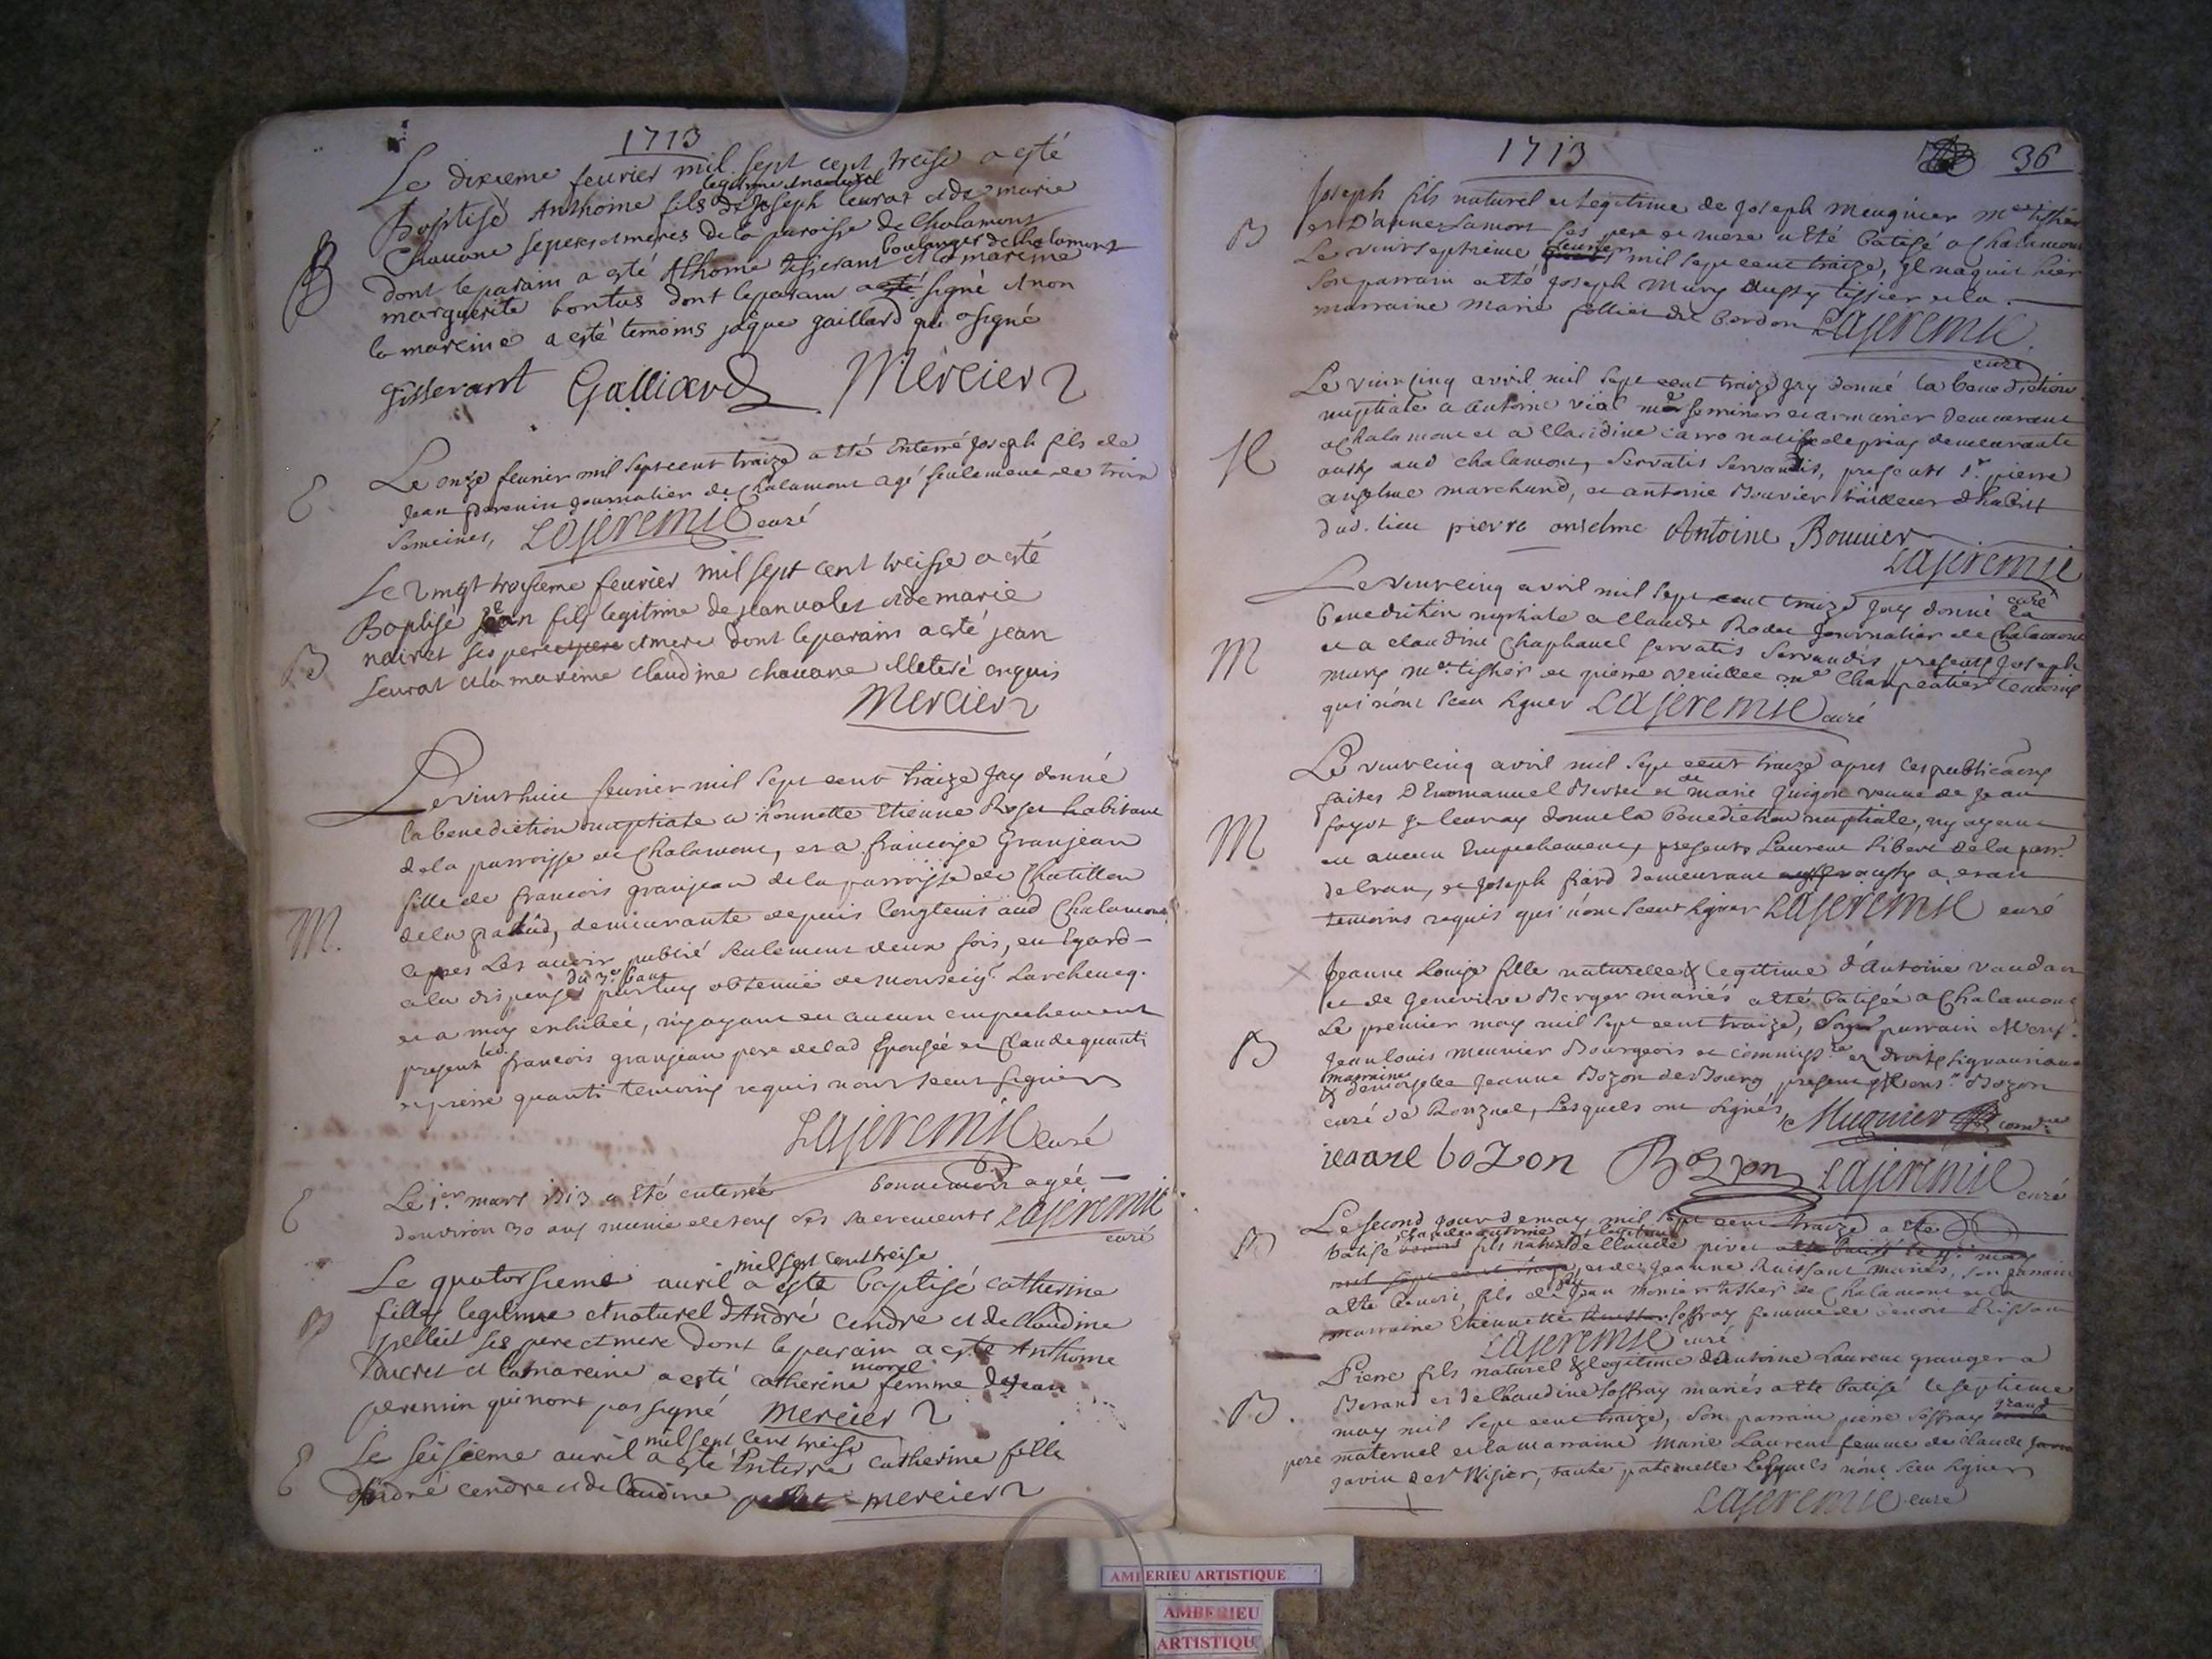 1713
Le dixieme feurier mil sept cent treise a esté
legitime et naturel
Baptisé Anthoine fils de Joseph leurat et de marie
Chauane seperes et meres de la paroisse de Chalamont
boulanger de Chalamont
B
dont le parain a esté Athoine tisserant et la mareine
marguerite bontus dont le parain a esté signé et non
la mareine a esté temoins jaque gaillard qui a signé
tisserant Galliard Mercier
Le onze feurier mil sept cent traize a eté enterré Joseph fils de
E
Jean perenin journalier de Chalamont agé seulement de trois
semeines, Lajeremie curé
Le vingt troisieme feurier mil sept cent treisse a esté
Baptisé jean fils legitime de jean volet et de marie
B
noiret ses pere et pere et mere dont le parain a esté jean
leurat et la mareine claudine chauane illeteré enquis
Mercier
Le vint huit feurier mil sept cent traize Jay donné
la benediction nuptiale a honnette Etienne Roset habitant
de la parroisse de Chalamont, et a francoise Granjean
fille de francois granjean de la parroisse de Chatillon
M.
de la palud, demeurante depuis longtems aud Chalamont
apres les auoir publié seulement deux fois, eu Egard
du 3e. ban
a la dispense par luy obtenüe de monseigr. Larcheueq.
et a moy exhibée, n'yayant eu aucun empechement
present led. francois granjean pere de lad Epousée et Claude quanti
et pierre quanti temoins requis n'ont sceut signer
Lajeremie curé
E
Le 1er. mars 1713 a eté enterrée bonnemois agée
denviron 30 ans munie de tous ses sacrements Lajeremie
curé
mil sept cent treise
Le quatorsieme auril a esté baptisé catherine
B
fille legitime et naturel d'André cendre et de Claudine
pellet ses pere et mere dont le parain a esté Anthoine
morel
ducret et la mareine a esté catherine femme de jean
perennin qui nont pas signé mercier
mil sept cent treise
E
Le seisieme auril a esté Enterré catherine fille
d'André cendre et de Claudine mercier
1713
36
Joseph fils naturel et legitime de Joseph meugnier me tissier
B
et D'anne Lamort ses pere et mere a eté batisé a Chalamont
Le vint septieme feurier mil sept cent traize, Il naquit hier
son parrain a eté Joseph Mury aussy tissier et la
marraine Marie follliet dit bordon Lajeremie
curé
Le vint cinq avril mil sept cent traize Jay donné la benediction
nuptiale a antoine vial demeurant
M
a Chalamont et a Claudine carro natiffe de demeurante
aussy aud Chalamont, servatis servandis, presents Sr. pierre
anselme marchand, et antoine Bouvier tailleur dhabits
dud. lieu pierre anselme Antoine Bouuier
Lajeremie
curé
Le vint cinq avril mil sept cent traize Jay donné la
benediction nuptiale a Claude Rodet Journalier de Chalamont
M
et a claudine Chaphanel servatis servandis presents Joseph
mury me. tissier et pierre veuillet me Charpentier temoins
qui n'ont sceu signer Lajeremie curé
Le vint cinq avril mil sept cent traize apres les publicaons
de
faites D'Emmanuel Bertet et marie guigon veuue de Jean
fayot Je leur ay donné la benediction nuptiale, ny ayant
M
eu aucun Empechement, presents Laurent libert de la parr.
de Cran, et Joseph fiard demeurant aussy a cran
temoins requis qui n'ont sceut signer Lajeremie curé
Jeanne Louise fille naturelle & legitime d'Antoine vaudan
et de Genevieve Berger mariés a eté batisée a Chalamont
Le premier may mil sept cent traize, Son parrain
B
Jean louis meunier Bourgeois et commiss.re
marraine
& demoiselle Jeanne Bozon de Bourg present Bozon
curé de Ronzuel, Lesquels ont signés, Mugnier com.re
ieanne bozon Bozon Lajeremie
curé
Le second jour de may mil sept cent traize a ete
B
batisé fils de Claude pivet
et de Jeanne Ruissant mariés, son parrain
a eté benoit, fils de Jean monier tissier de Chalamont et la
marraine Etiennette Joffray femme de benoit
Lajeremie curé
Pierre fils naturel & legitime d'antoine Laurent granger a
B.
Berand et de Claudine Joffray mariés a eté batisé le septieme
may mil sept cent traize, Son parrain pierre Joffray grand
pere maternel et la marraine Marie Laurent femme de claude
javin de St Nisier, tante paternelle Lesquels n'ont sceu signer
Lajeremie curé
AMBERIEU ARTISTIQUE
AMBERIEU
ARTISTIQU